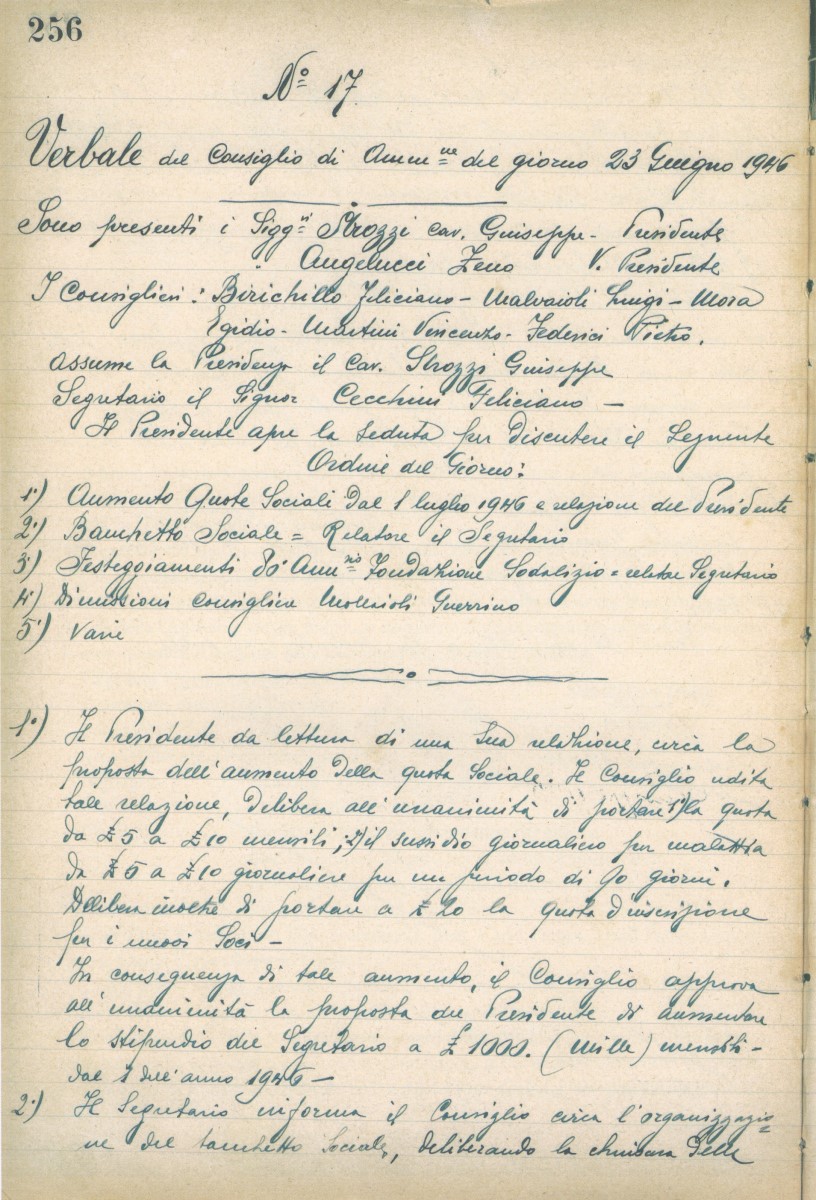 256
Nº 17.
Verbale del Consiglio di Amm.ne del giorno 23 Giugno 1946
Sono presenti i Sigg.ri Strozzi cav. Giuseppe - Presidente
" Angelucci Zeno V. Presidente
I Consiglieri: Birichillo Feliciano - Malvaioli Luigi - Mora
Egidio - Martini Vincenzo - Federici Pietro.
Assume la Presidenza il Cav. Strozzi Giuseppe
Segretario il Signor Cecchini Feliciano -
Il Presidente apre la seduta per discutere il seguente
Ordine del Giorno:
1º) Aumento Quote Sociali dal 1 luglio 1946 e relazione del Presidente
2º) Banchetto Sociale = Relatore il Segretario
3º) Festeggiamenti 80º Ann.rio Fondazione Sodalizio = relatore Segretario
4º) Dimissioni consigliere Guerrino
5º) Varie
1º) Il Presidente da lettura di una sua relazione, circa la
proposta dell'aumento della quota Sociale. Il Consiglio udita
tale relazione, delibera all'unanimità di portare 1º) la quota
da £ 5 a £ 10 mensili; 2º) il sussidio giornaliero per malattia
da £ 5 a £ 10 giornaliere per un periodo di 90 giorni.
Delibera inoltre di portare a £ 20 la quota d'iscrizione
per i nuovi Soci -
In conseguenza di tale aumento, il Consiglio approva
all'unanimità la proposta del Presidente di aumentare
lo stipendio del Segretario a £ 1000. (mille) mensili -
dal 1 dell'anno 1946 -
2º) Il Segretario informa il Consiglio circa l'organizzazio=
ne del banchetto Sociale, deliberando la chiusura delle